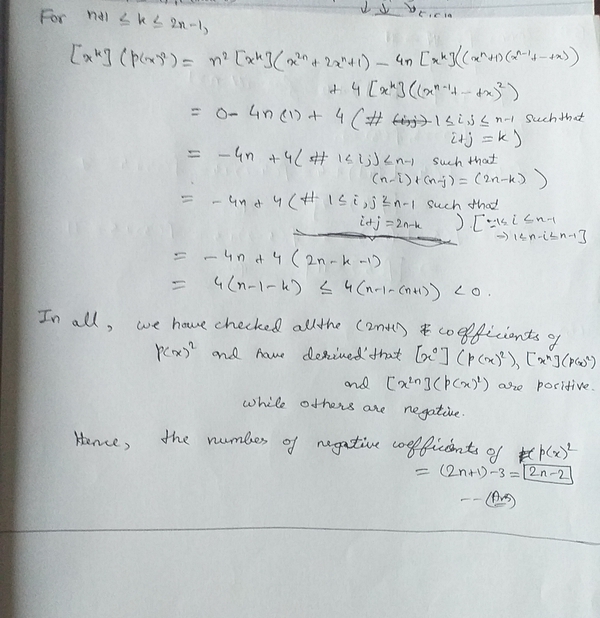 For n+1 ≤ k ≤ 2n-1,
[x^k] (p(x)²) = n² [x^k](x^2n + 2x^n + 1) - 4n [x^k]((x^n+1)(x^n-1+--+x))
+ 4 [x^k]((x^n-1+--+x)²)
= 0 - 4n(1) + 4 ( # 1≤i,j≤n-1 such that
i+j = k )
= -4n + 4( # 1≤i,j≤n-1 such that
(n-i)+(n-j)=(2n-k) )
= -4n + 4( # 1≤i,j≤n-1 such that
i+j = 2n-k ) [∵1≤i≤n-1
→ 1≤n-i≤n-1]
= -4n + 4 (2n-k-1)
= 4(n-1-k) ≤ 4(n-1-(n+1)) < 0.
In all, we have checked all the (2n+1) coefficients of
p(x)² and have derived that [x⁰] (p(x)²), [x^n](p(x)²)
and [x^2n](p(x)²) are positive.
while others are negative.
Hence, the number of negative coefficients of p(x)²
= (2n+1)-3 = 2n-2
-- (Ans)